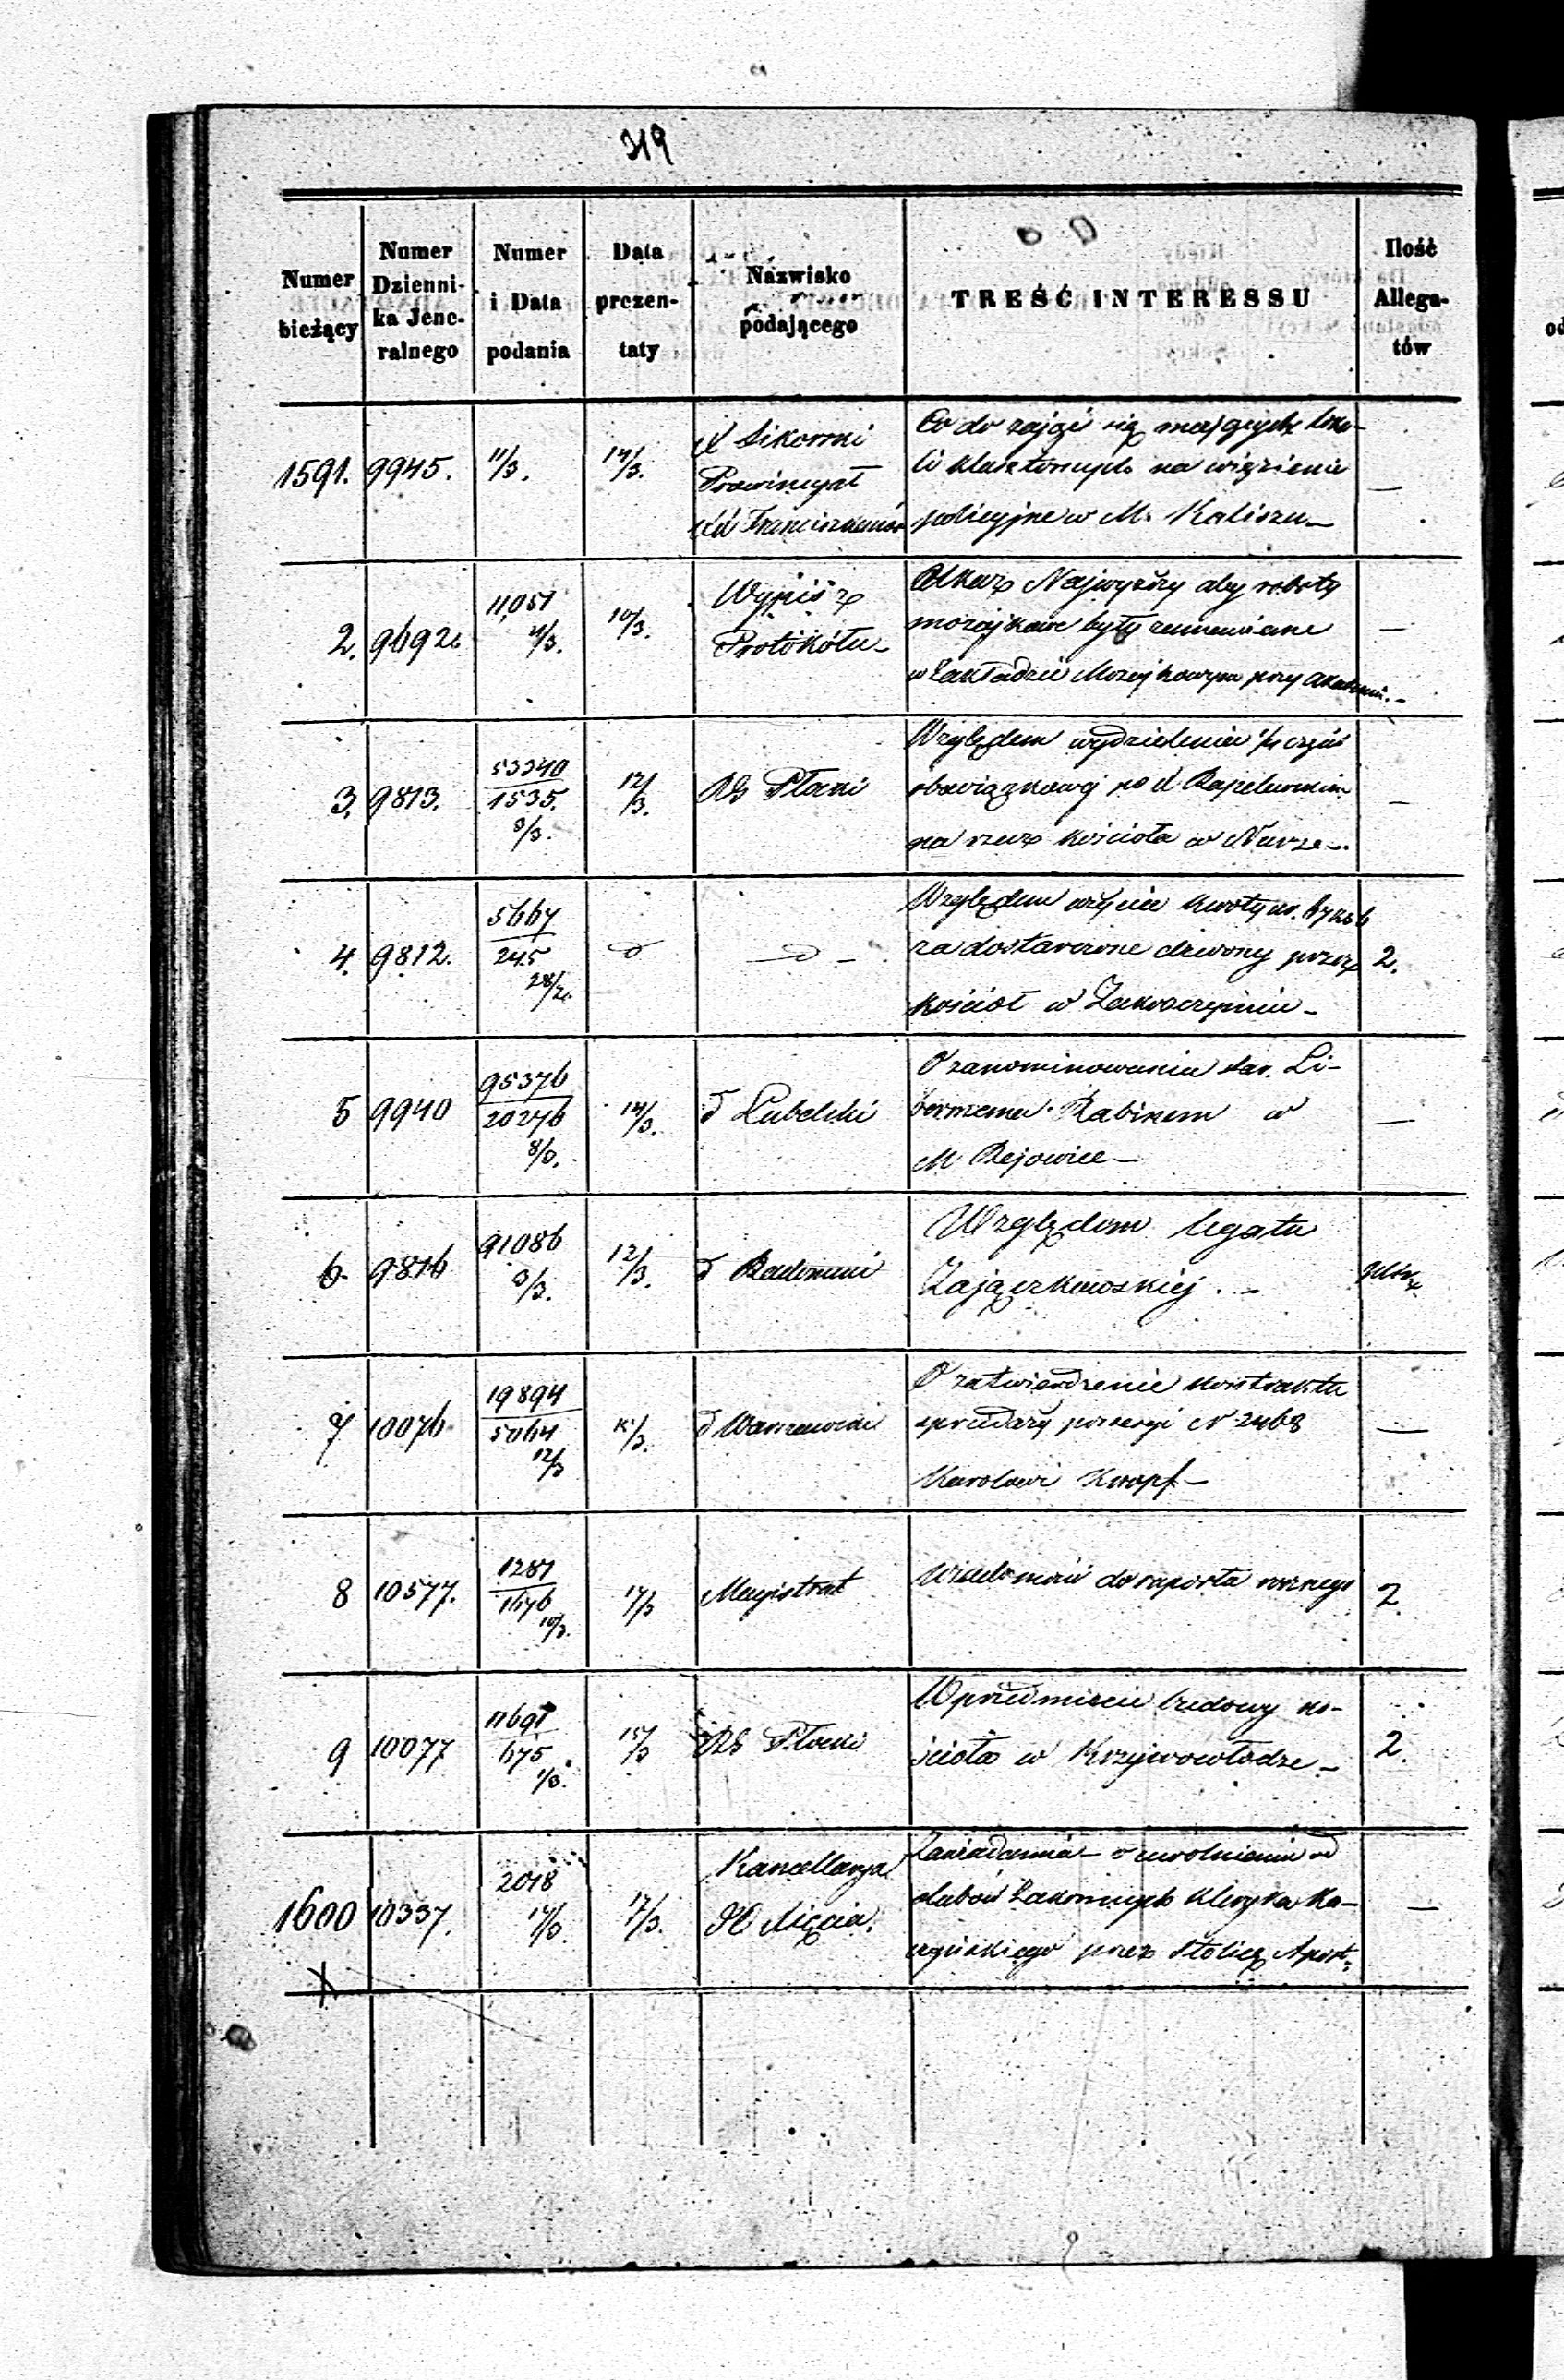 319
Numer bieżący
Numer Dzienni-ka Jene-ralnego
Numer i Data podania
Data prezen-taty
Nazwisko podającego
TREŚĆ INTERESSU
Ilość Allega-tów
1591. 9945. 11/3. 14/3.
X Sikorski
Prowincyał
XX Franciszkanów
Co do zająć się mających loka-
li klasztornych na więzienie
policyjne w M. Kaliszu —
2. 9692. 11051 4/3. 10/3.
Wypis z
Protokółu —
Najwyższy aby roboty
mozajkowe były zamawiane
w Zakładzie Mozajkowym przy Akademii. —
3. 9813. 53340 1535. 3/3. 12/3.
RG Płocki
Względem wydzielenia części
obowiązkowej po
na rzecz kościoła w Nurze —
4. 9812. 5667 245 28/2.
Względem użycia kwoty
za dostarczone dzwony przez
kościoł w Zakroczymiu —
2.
5 9940 95376 20276 8/3. 14/3.
d Lubelski
O zanominowanie star. Li-
bermana Rabinem w
M. Rejowice —
6. 9816 91086 3/3. 12/3.
d Radomski
Względem legatu
Zajączkowskiej. —
7 10076 19894 5064 12/3
d Warszawski
O zatwierdzenie kontraktu
sprzedaży possesyi N 2468
Karolowi Knopf —
8 10577. 1287 10/3. 17/3
Magistrat
Wiadomość do raportu rocznego
2.
9 10077 11691 675 1/3. 15/3
RG Płocki
W przedmiocie budowy ko-
ścioła w Krzywowłodze —
2.
1600 10337. 2018 14/3. 17/3.
Kancellarya
JO Xięcia.
Zawiadamia o uwolnieniu od
ślubów zakonnych kleryka Ka-
przez Stolicę Apost.